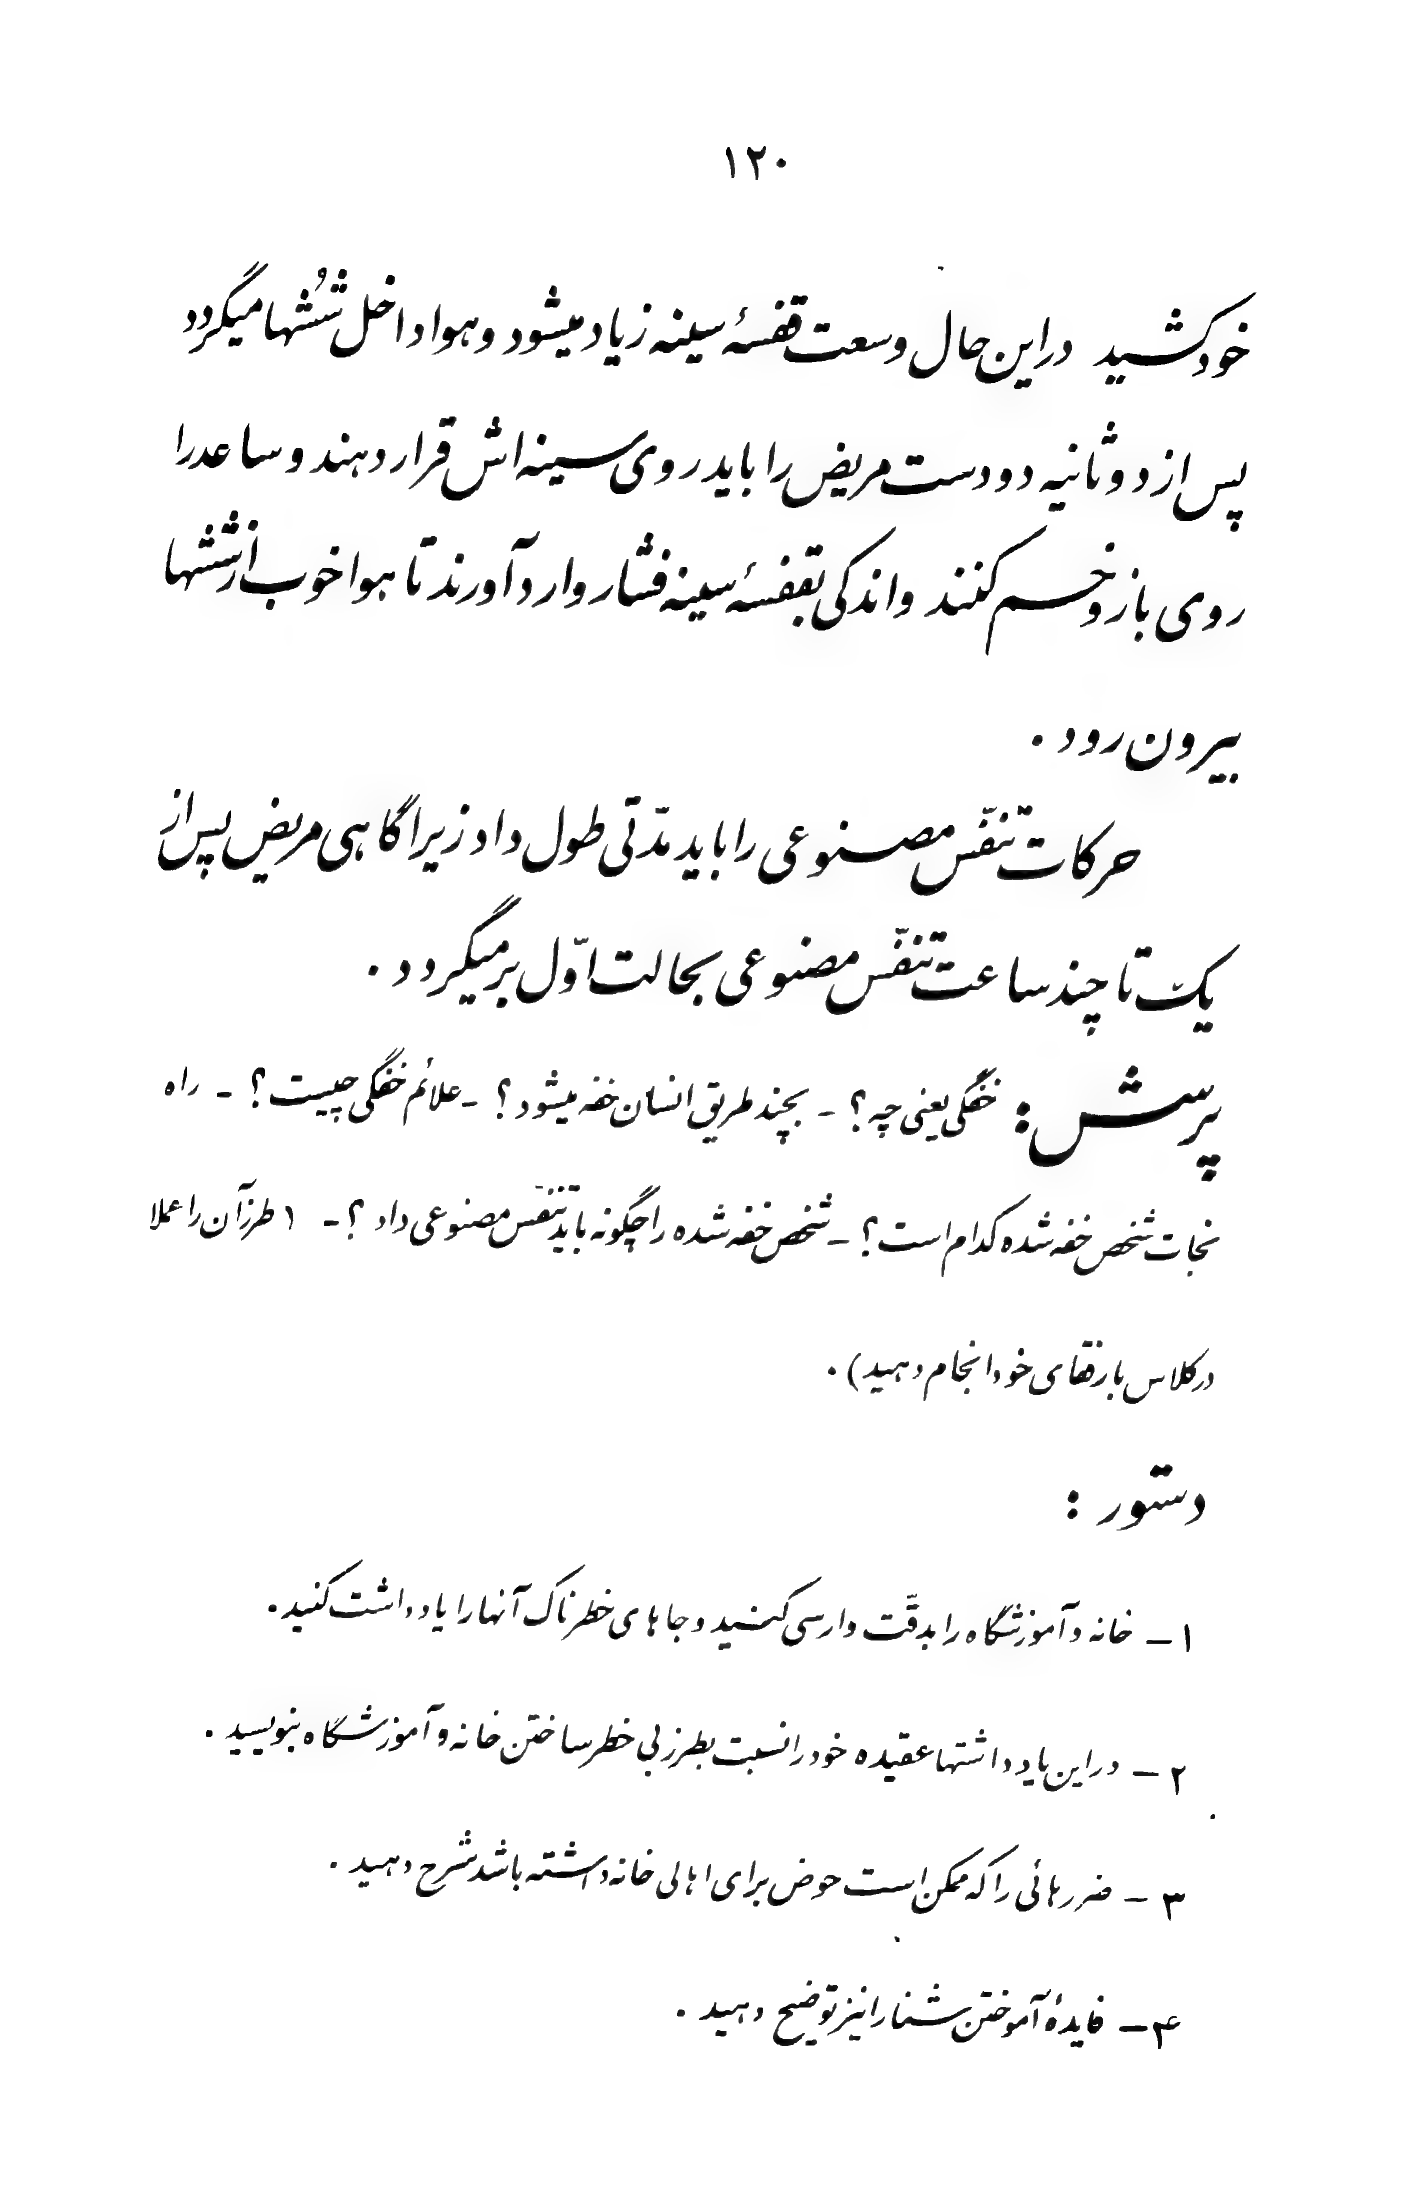 ۱۲۰
خود کشید در این حال وسعت قفسهٔ سینه زیاد میشود و هوا داخل ششُها میگردد
پس از دو ثانیه دو دست مریض را باید روی سینه‌اش قرار دهند و ساعد را
روی بازو خم کنند و اندکی بقفسهٔ سینه فشار وارد آورند تا هوا خوب از ششها
بیرون رود .
حرکات تنفّس مصنوعی را باید مدّتی طول داد زیرا گاهی مریض پس از
یک تا چند ساعت تنفّس مصنوعی بحالت اوّل برمیگردد .
پرسش : خفگی یعنی چه ؟ - بچند طریق انسان خفه میشود ؟ - علائم خفگی چیست ؟ - راه
نجات شخص خفه شده کدام است ؟ - شخص خفه شده را چگونه باید تنفّس مصنوعی داد ؟ - ( طرز آن را عملا
در کلاس با رفقای خود انجام دهید ) .
دستور :
۱ - خانه و آموزشگاه را بدقّت وارسی کنید و جاهای خطرناک آنها را یادداشت کنید .
۲ - در این یادداشتها عقیده خود را نسبت بطرز بی خطر ساختن خانه و آموزشگاه بنویسید .
۳ - ضررهائی را که ممکن است حوض برای اهالی خانه داشته باشد شرح دهید .
۴ - فایدهٔ آموختن شنا را نیز توضیح دهید .